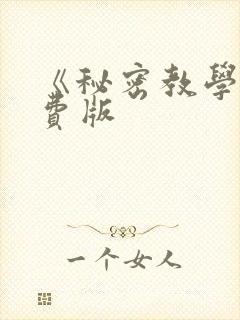 《秘密教學
費版
一个女人